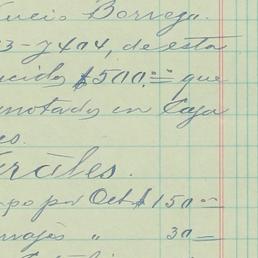 ucio Borrego.
3-7404, de esta
$500.= que
anotado en Caja
es.
erales.
po por Oct $150=
" 30=